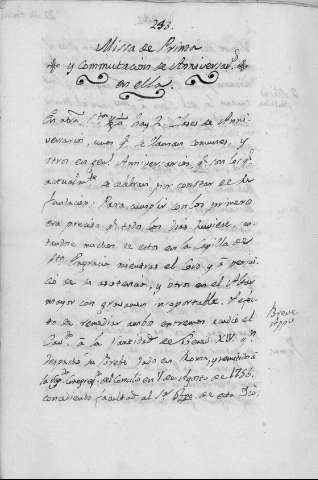 293.
Missa de Prima
y Commutación de Anniversar.s
en ella.
En nra S.ta Ygl.a hay 2 clases de Anni-
versarios, unos q.e llaman comunes, y
otros en gen.l Anniversarios, q.e son los q.e
actualm.te se celebran por constar de su
fundacion: Para cumplir con los primeros
era preciso q.e todos los dias huviese, can-
tandose muchos de estos en la Capilla de
Sta Engracia mientras el Coro y a perjui-
cio de la asistencia, y otros en el Altar
mayor con gravamen insoportable. A efec-
to de remediar ambos extremos acudió el
Cav.do a la Santidad de Bened. XIV. q.n
despachó su Brebe dado en Roma, y remitido a
la Cong. del Concilio en 7 de Agosto de 1756.
concediendo facultad al S.r Obpo. de esta Dio.
Breve